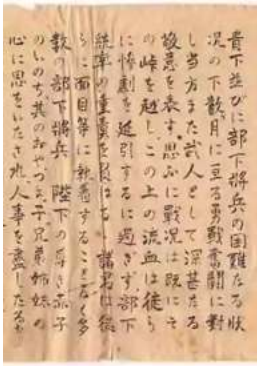 貴下並びに部下将兵の困難なる状
況の下数月に亘る勇戦奮闘に対
し当方また武人として深甚なる
敬意を表す。思ふに戦况は既にそ
の峠を越し、この上の流血は徒ら
に惨劇を延引するに過ぎず、部下
統率の重責を負はるゝ諸君は徒
らに面目等に執着することなく多
数の部下将兵 陛下の尊き赤子
のいのち其のおやつま子兄弟姉妹の
心に思をいたされ人事を盡したる